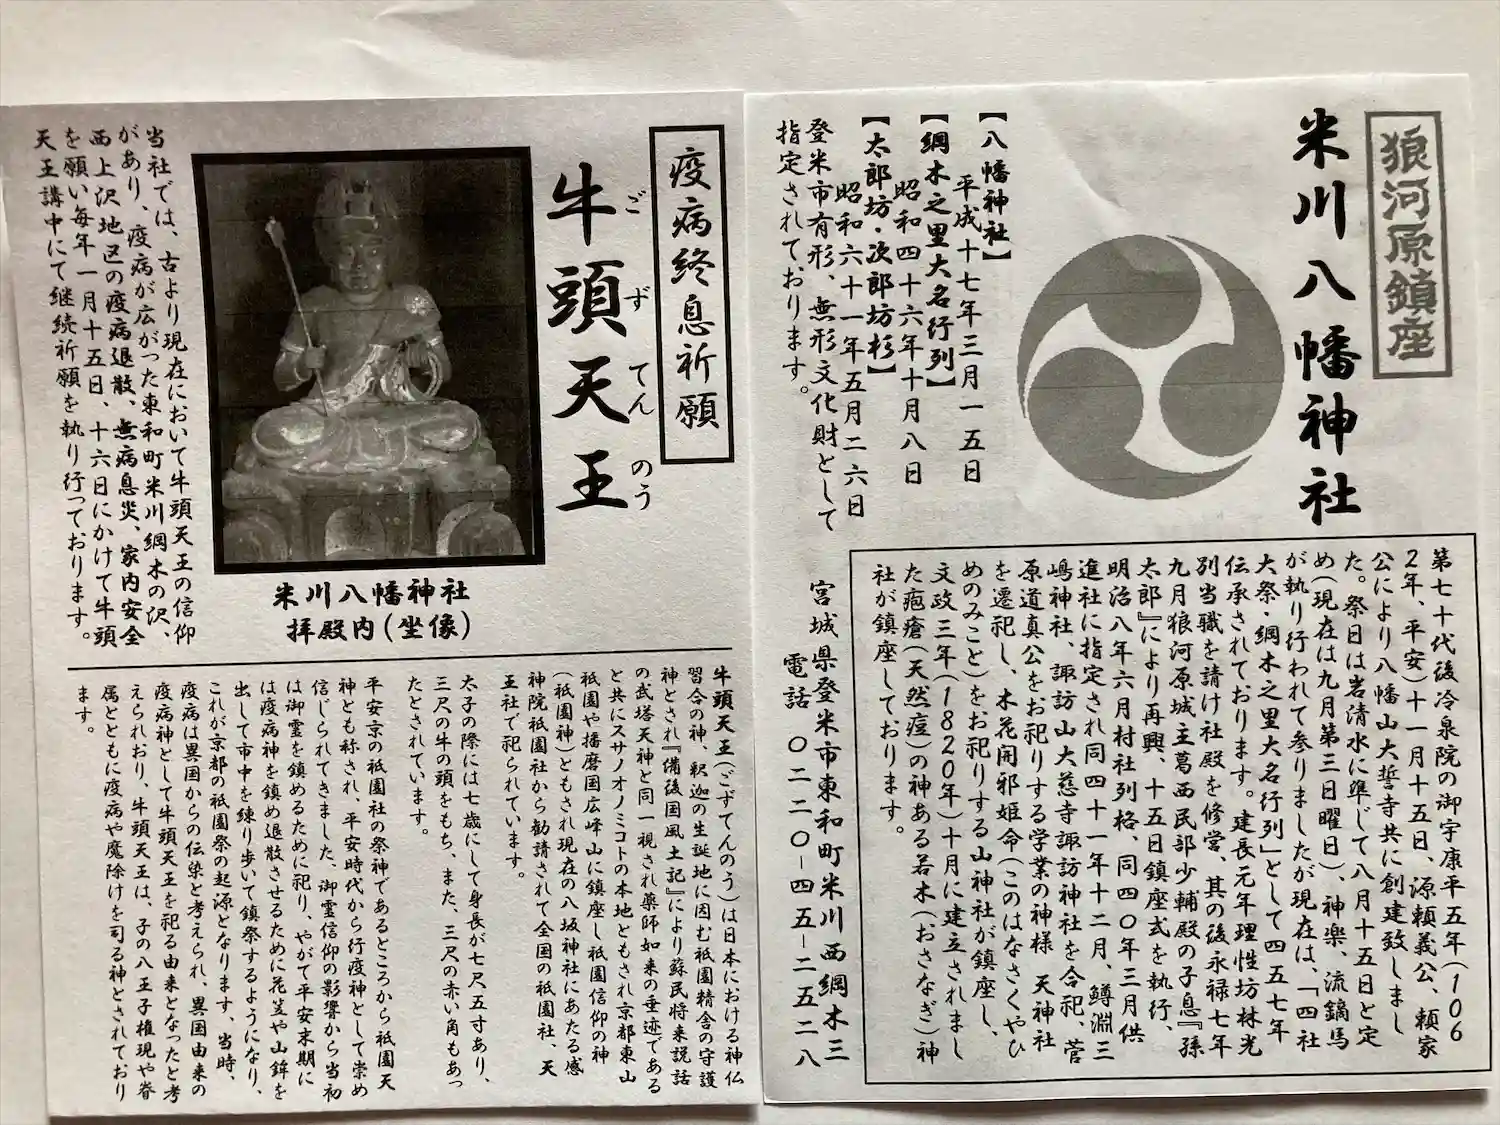 狼河原鎮座
米川八幡神社
【八幡神社】
平成十七年三月一五日
【綱木之里大名行列】
昭和四十六年十月八日
【太郎坊・次郎坊杉】
昭和六十一年五月二六日
登米市有形、無形文化財として
指定されております。
第七十代後冷泉院の御宇康平五年(106
2年、平安)十一月十五日、源頼義公、頼家
公により八幡山大誓寺共に創建致しまし
た。祭日は岩清水に準じて八月十五日と定
め(現在は九月第三日曜日)、神楽、流鏑馬
が執り行われて参りましたが現在は、「四社
大祭・綱木之里大名行列」として四五七年
伝承されております。建長元年理性坊林光
別当職を請け社殿を修営、其の後永禄七年
九月狼河原城主葛西民部少輔殿の子息『孫
太郎』により再興、十五日鎮座式を執行、
明治八年六月村社列格、同四〇年三月供
進社に指定され同四十一年十二月、鱒淵三
嶋神社、諏訪山大慈寺諏訪神社を合祀、菅
原道真公をお祀りする学業の神様 天神社
を遷祀し、木花開邪姫命(このはなさくやひ
めのみこと)をお祀りする山神社が鎮座し、
文政三年(1820年)十月に建立されまし
た疱瘡(天然痘)の神ある若木(おさなぎ)神
社が鎮座しております。
宮城県登米市東和町米川西綱木三
電話 〇二二〇-四五-二五二八
疫病終息祈願
牛頭天王
ごずてんのう
米川八幡神社
拝殿内(坐像)
当社では、古より現在において牛頭天王の信仰
があり、疫病が広がった東和町米川綱木の沢、
西上沢地区の疫病退散、無病息災、家内安全
を願い毎年一月十五日、十六日にかけて牛頭
天王講中にて継続祈願を執り行っております。
牛頭天王(ごずてんのう)は日本における神仏
習合の神、釈迦の生誕地に因む祇園精舎の守護
神とされ『備後国風土記』により蘇民将来説話
の武塔天神と同一視され薬師如来の垂迹である
と共にスサノオノミコトの本地ともされ京都東山
祇園や播磨国広峰山に鎮座し祇園信仰の神
(祇園神)ともされ現在の八坂神社にあたる感
神院祇園社から勧請されて全国の祇園社、天
王社で祀られています。
太子の際には七歳にして身長が七尺五寸あり、
三尺の牛の頭をもち、また、三尺の赤い角もあっ
たとされています。
平安京の祇園社の祭神であるところから祇園天
神とも称され、平安時代から行疫神として崇め
信じられてきました、御霊信仰の影響から当初
は御霊を鎮めるために祀り、やがて平安末期に
は疫病神を鎮め退散させるために花笠や山鉾を
出して市中を練り歩いて鎮祭するようになり、
これが京都の祇園祭の起源となります、当時、
疫病は異国からの伝染と考えられ、異国由来の
疫病神として牛頭天王を祀る由来となったと考
えられおり、牛頭天王は、子の八王子権現や眷
属とともに疫病や魔除けを司る神とされており
ます。